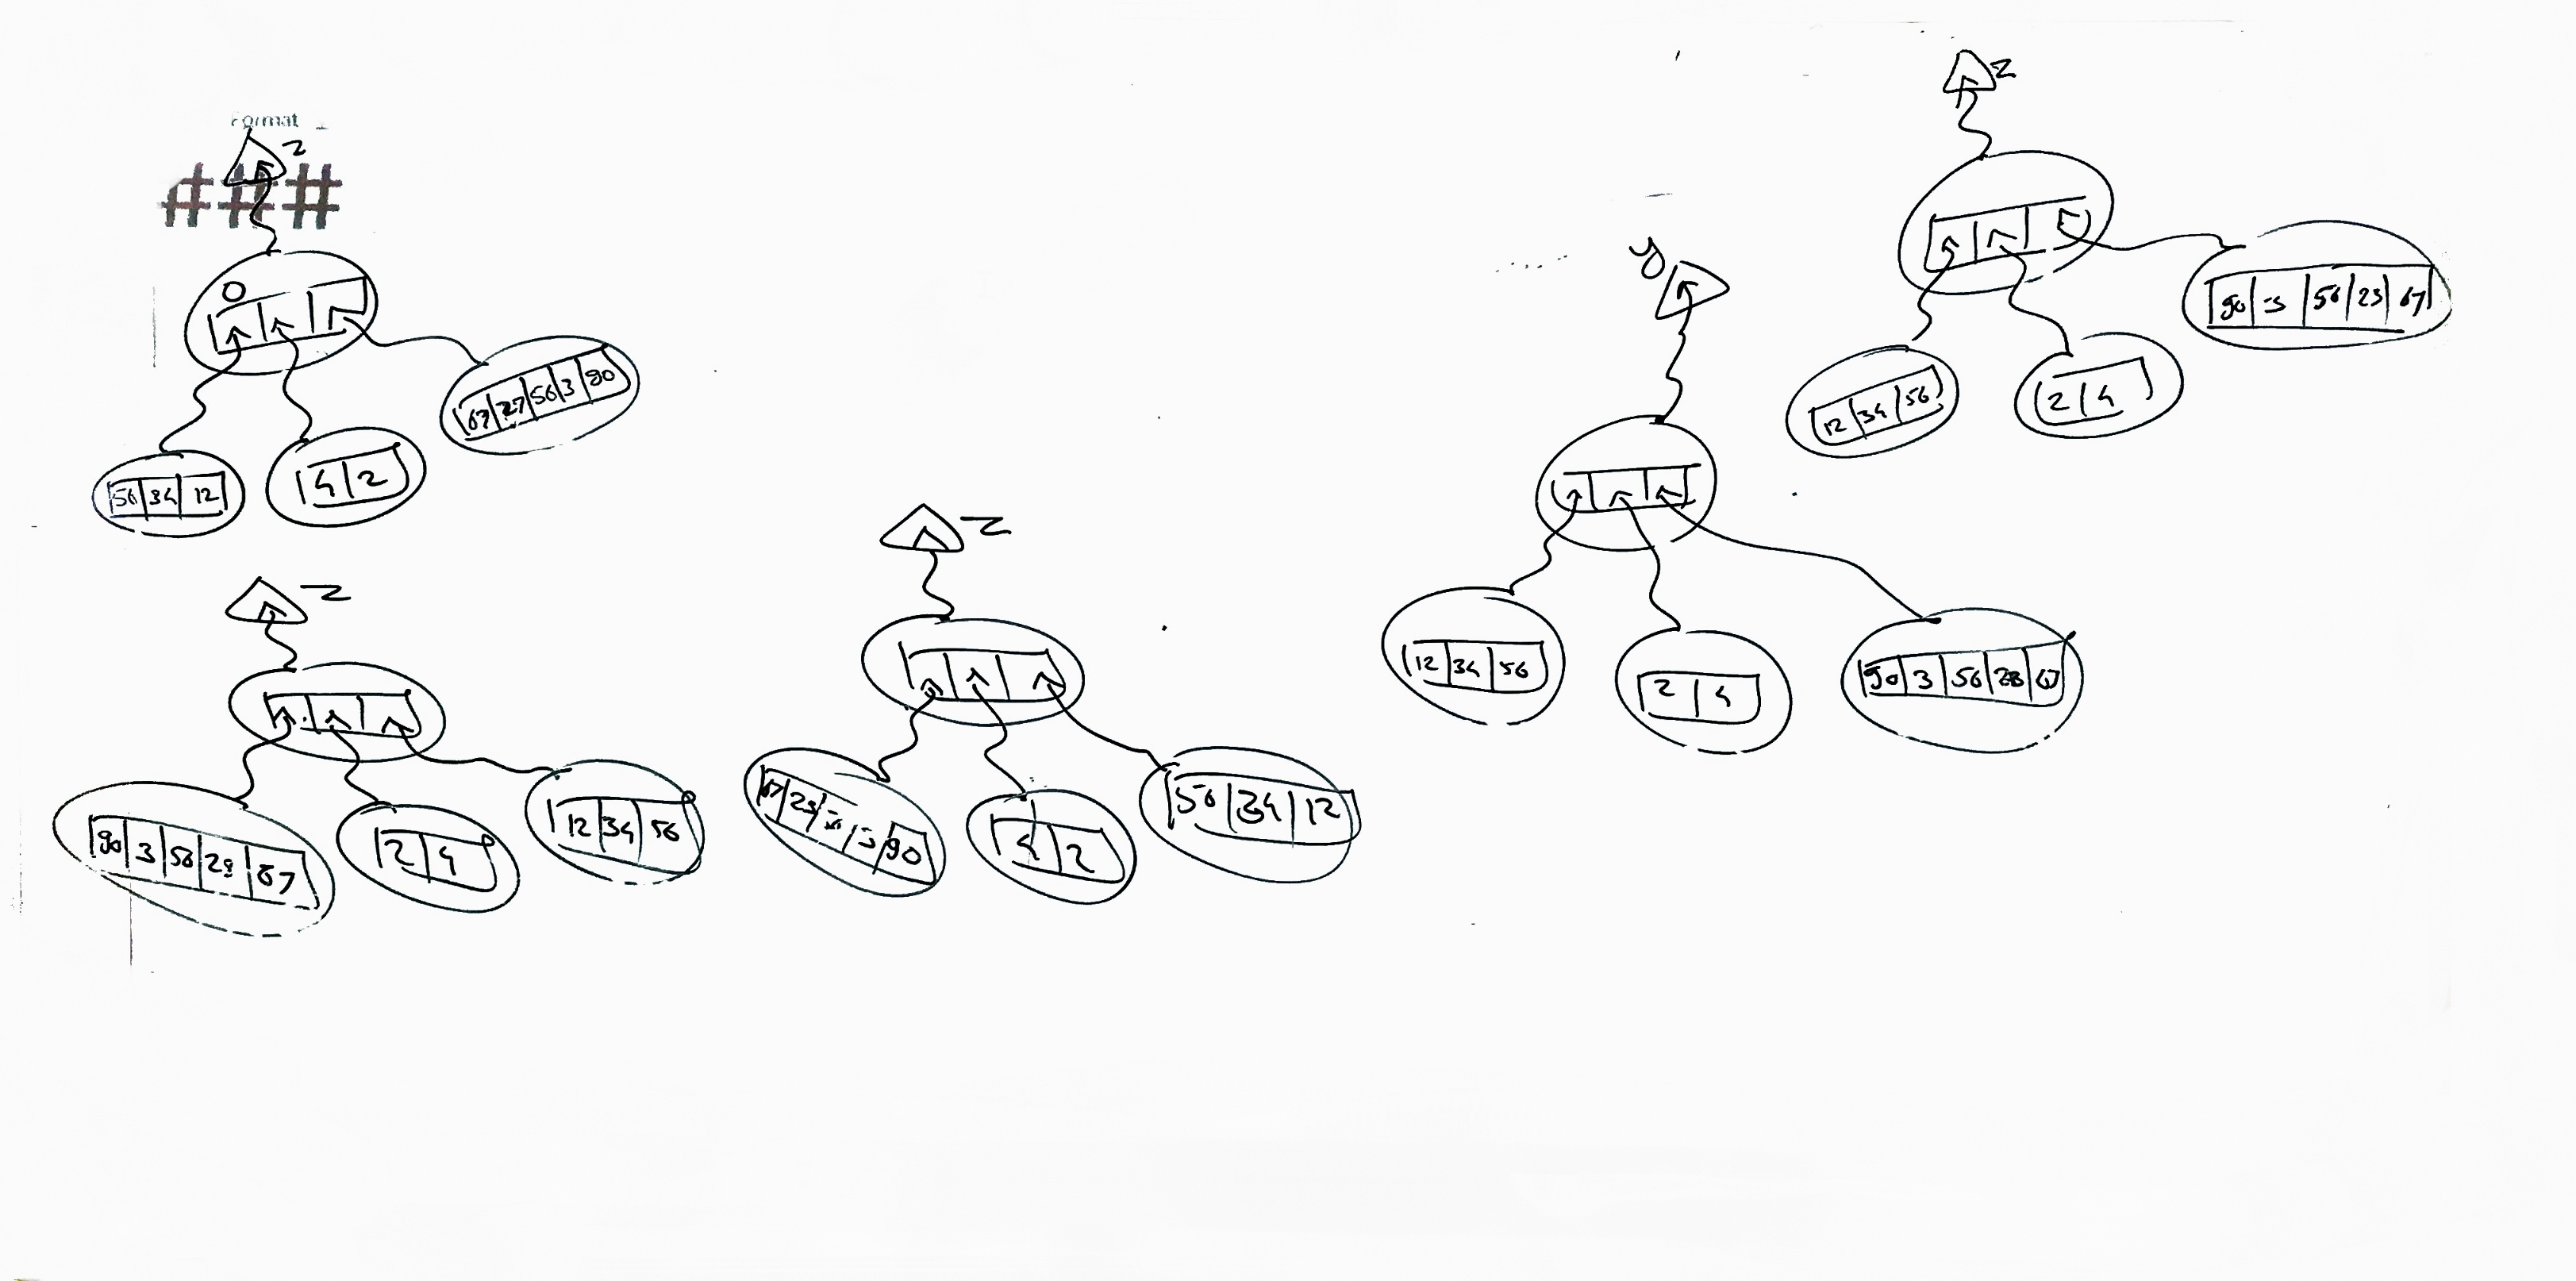 Format
###
z
56 34 12
4 2
67 27 56 3 90
z
90 3 56 23 67
2 4
12 34 56
z
67 23 56 3 90
4 2
56 34 12
y
12 34 56
2 4
90 3 56 23 67
z
12 34 56
2 4
90 3 56 23 67